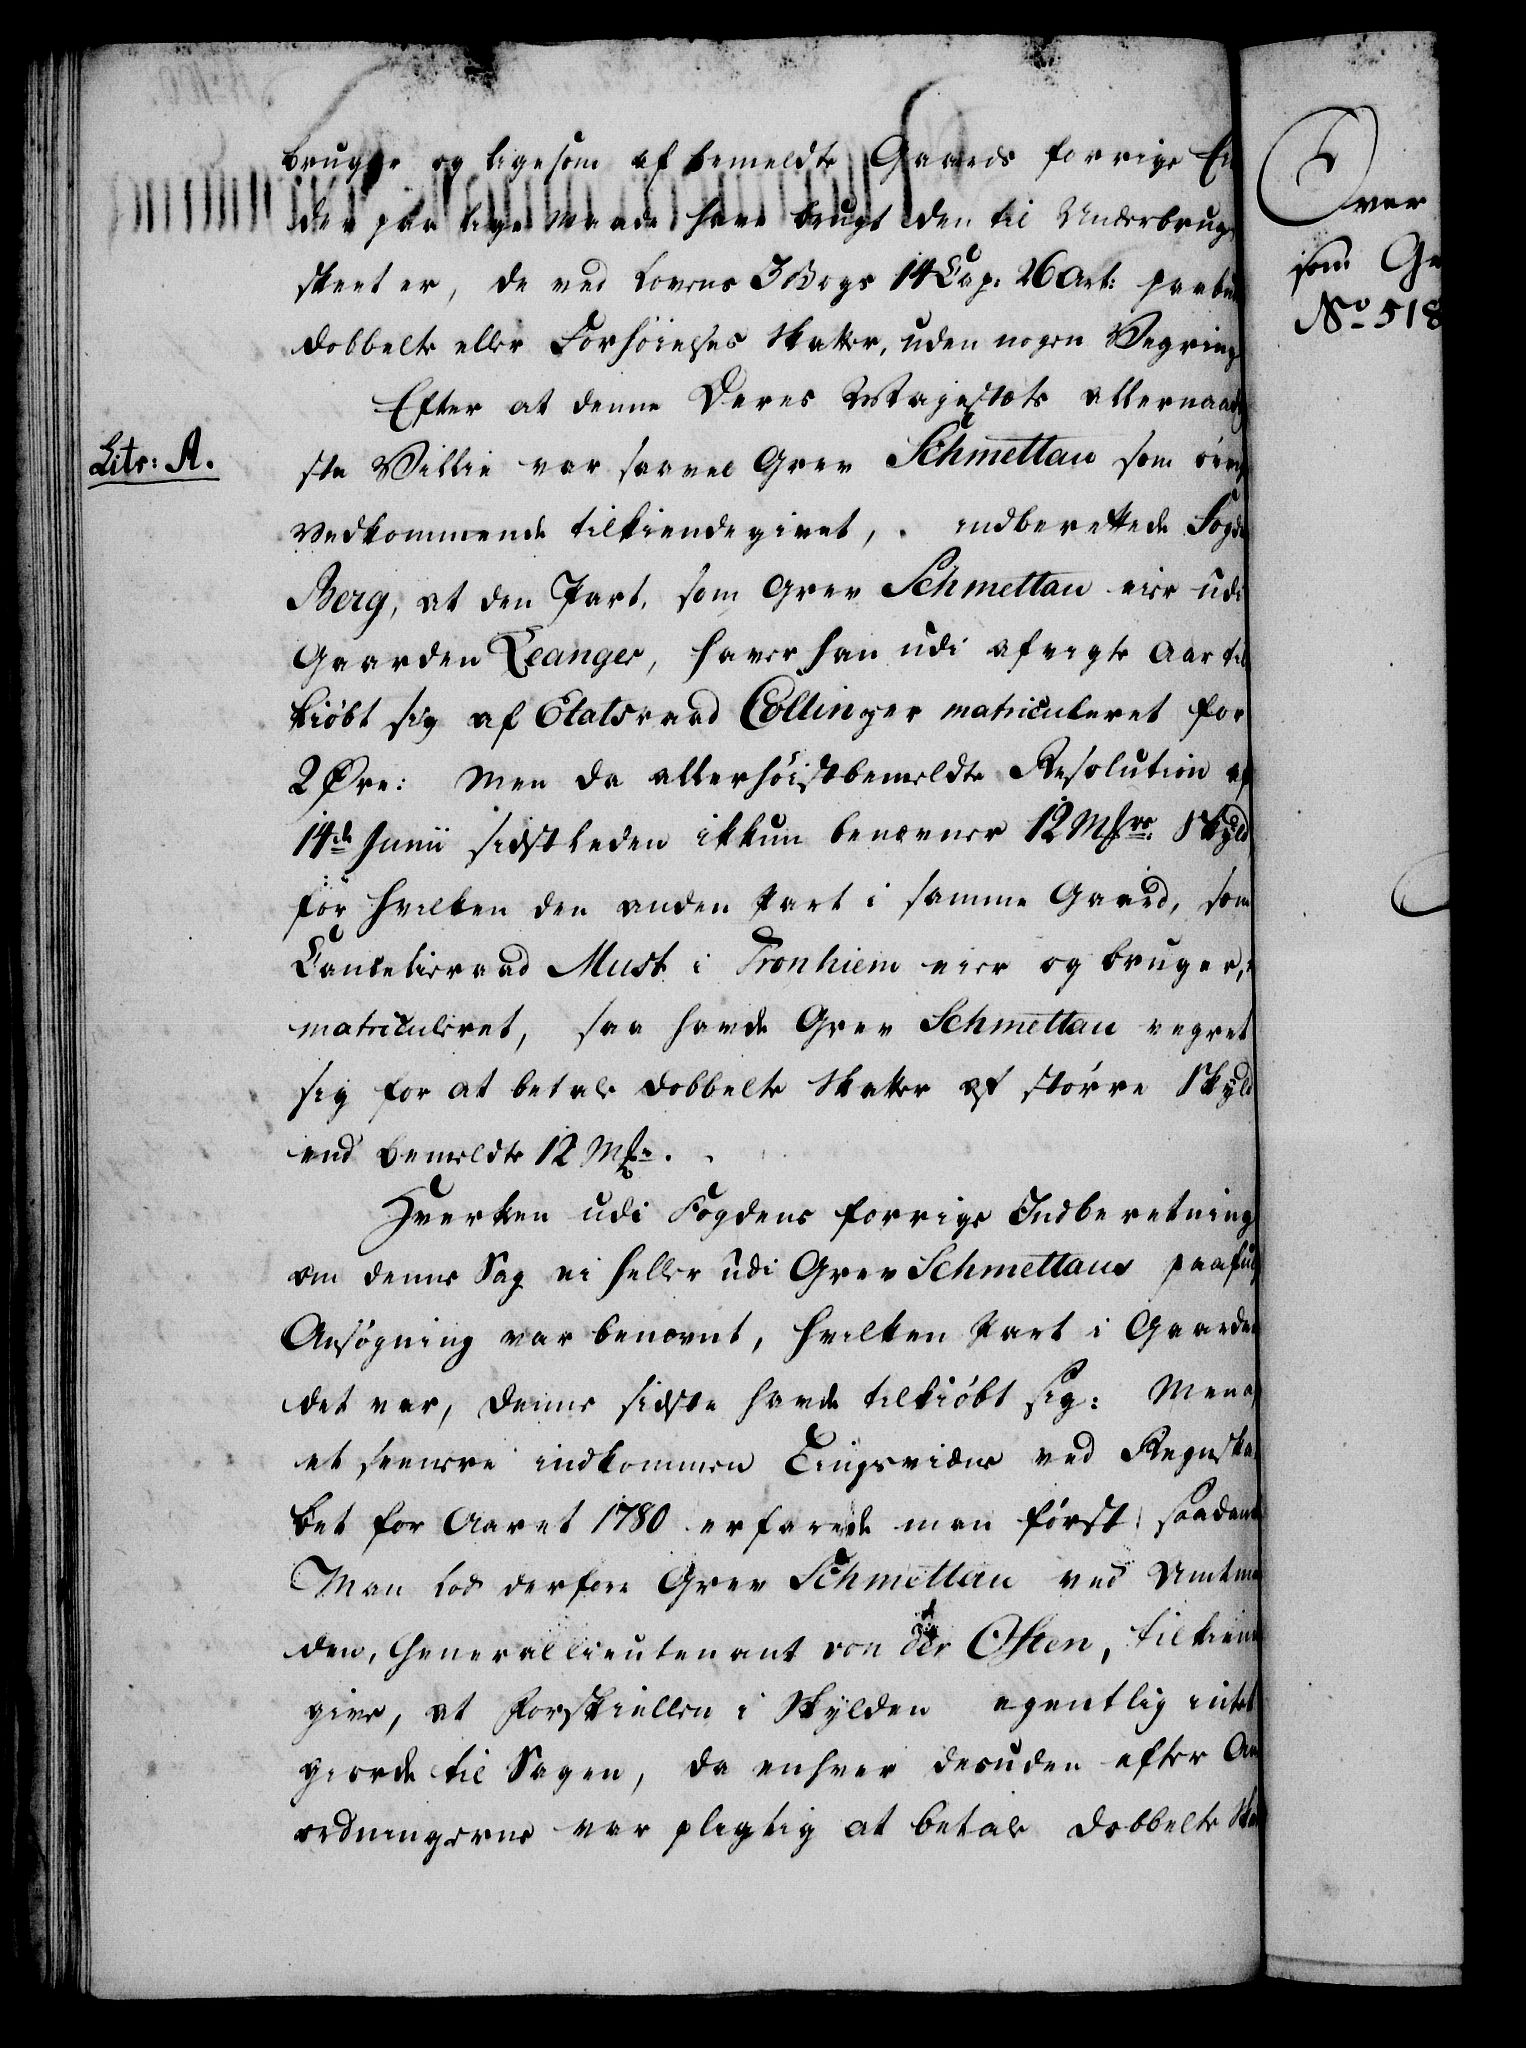 bruge og ligesom af bemeldte Gaards forrige Ei
der paa lige maade have brugt den til Underbrug
skeet er, de ved Lovens 3 Bogs 14 Cap. 26 Art: paabu
dobbelte eller Forhøielses Skatter, uden nogen Vegring
Efter at denne Deres Majestæts allernaadig
Litr: A.
ste Villie var saavel Grev Schmettau som øvrig
Vedkommende tilkiendegivet, indberettede Fogde
Berg, at den Part, som Grev Schmettau eier udi
Gaarden Leanger, haver han udi afvigte Aar til
kiøbt sig af Etatsraad Collin for matriculeret for
2 Øre: Men da allerhøistbemeldte Resolution af
14de Junii sidstleden ikkun benævner 12 Mrk. Skyld
for hvilken den anden Part i samme Gaard, som
Cancelieraad Must i Tronhiem eier og bruger, er
matriculeret, saa havde Grev Schmettau vegret
sig for at betale dobbelte Skatter af større Skyld
end bemeldte 12 Mrk.
Hverken udi Fogdens forrige Indberetning
om denne Sag ei heller udi Grev Schmettaus paafulg
Ansøgning var benævnt, hvilken Part i Gaarden
det var, denne sidste havde tilkiøbt sig: Men af
et seenere indkommen Tingsvidne ved Regnska
bet for Aaret 1780 erfarede man først saadant
Man lod derfore Grev Schmettau ved Amtma
den, Generallieutenant von der Osten, tilkiende
give, at Forskiellen i Skylden egentlig intet
giorde til Sagen, da enhver desuden efter An
ordningerne var pligtig at betale dobbelte Ska
Over
som Gr
No 518